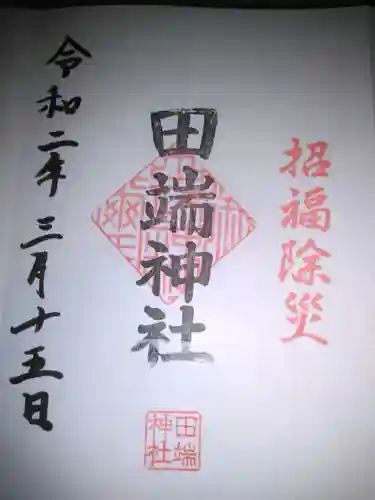 招福除災
田端神社
田端神社
令和二年三月十五日